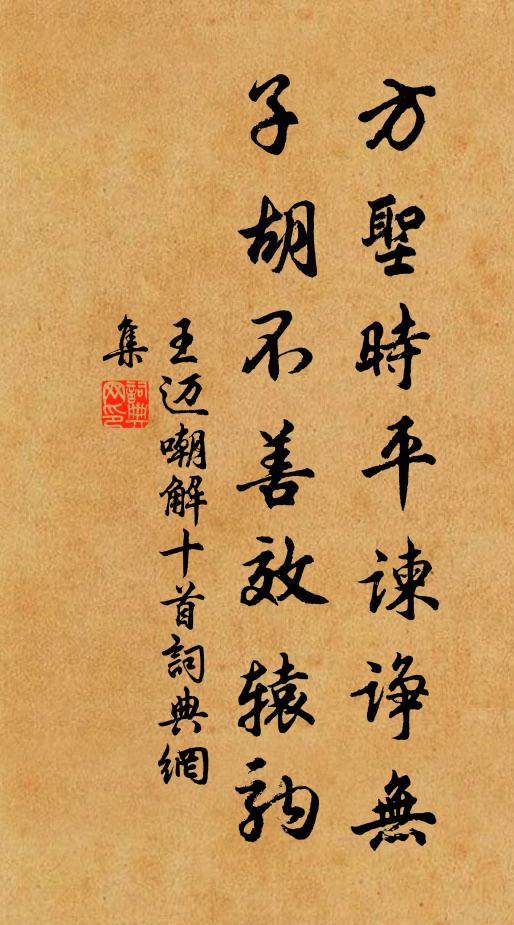 方聖時平諫諍無
子胡不善效辕駒
王迈嘲解十首詞典網
集
詞典
网印